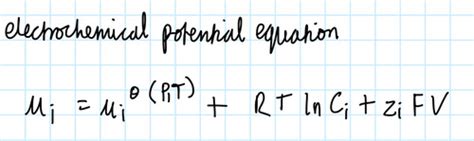 electrochemical potential equation
μi = μi^θ (P,T) + RT ln Ci + zi FV